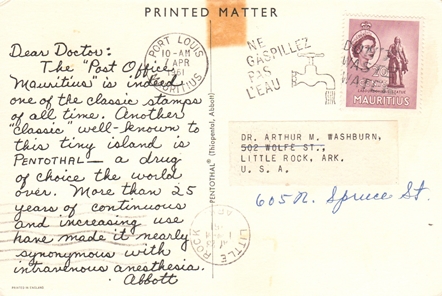 PRINTED MATTER
Dear Doctor:
The "Post Office
Mauritius" is indeed
one of the classic stamps
of all time. Another
"classic" well-known to
this tiny island is
PENTOTHAL — a drug
of choice the world
over. More than 25
years of continuous
and increasing use
have made it nearly
synonymous with
intravenous anesthesia.
Abbott
PRINTED IN ENGLAND
PENTOTHAL® (Thiopental, Abbott)
PORT LOUIS
10-AM
APR
1961
MAURITIUS
NE
GASPILLEZ
PAS
L'EAU
DON'T
WASTE
WATER
MAURITIUS
DR. ARTHUR M. WASHBURN,
502 WOLFE ST.,
LITTLE ROCK, ARK.
U. S. A.
605 N. Spruce St.
LITTLE ROCK